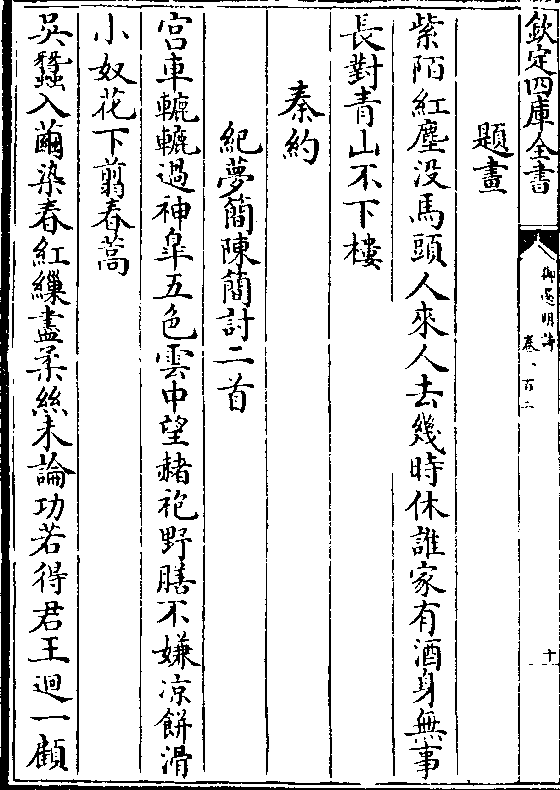 欽定四庫全書
御選明詩
卷一百二
十
題畫
紫陌紅塵没馬頭人來人去幾時休誰家有酒身無事
長對青山不下樓
秦約
紀夢簡陳簡討二首
宫車轆轆過神臯五色雲中望赭袍野膳不嫌凉餅滑
小奴花下翦春蒿
吴蠶入繭染春紅繅盡柔絲未論功若得君王迴一顧